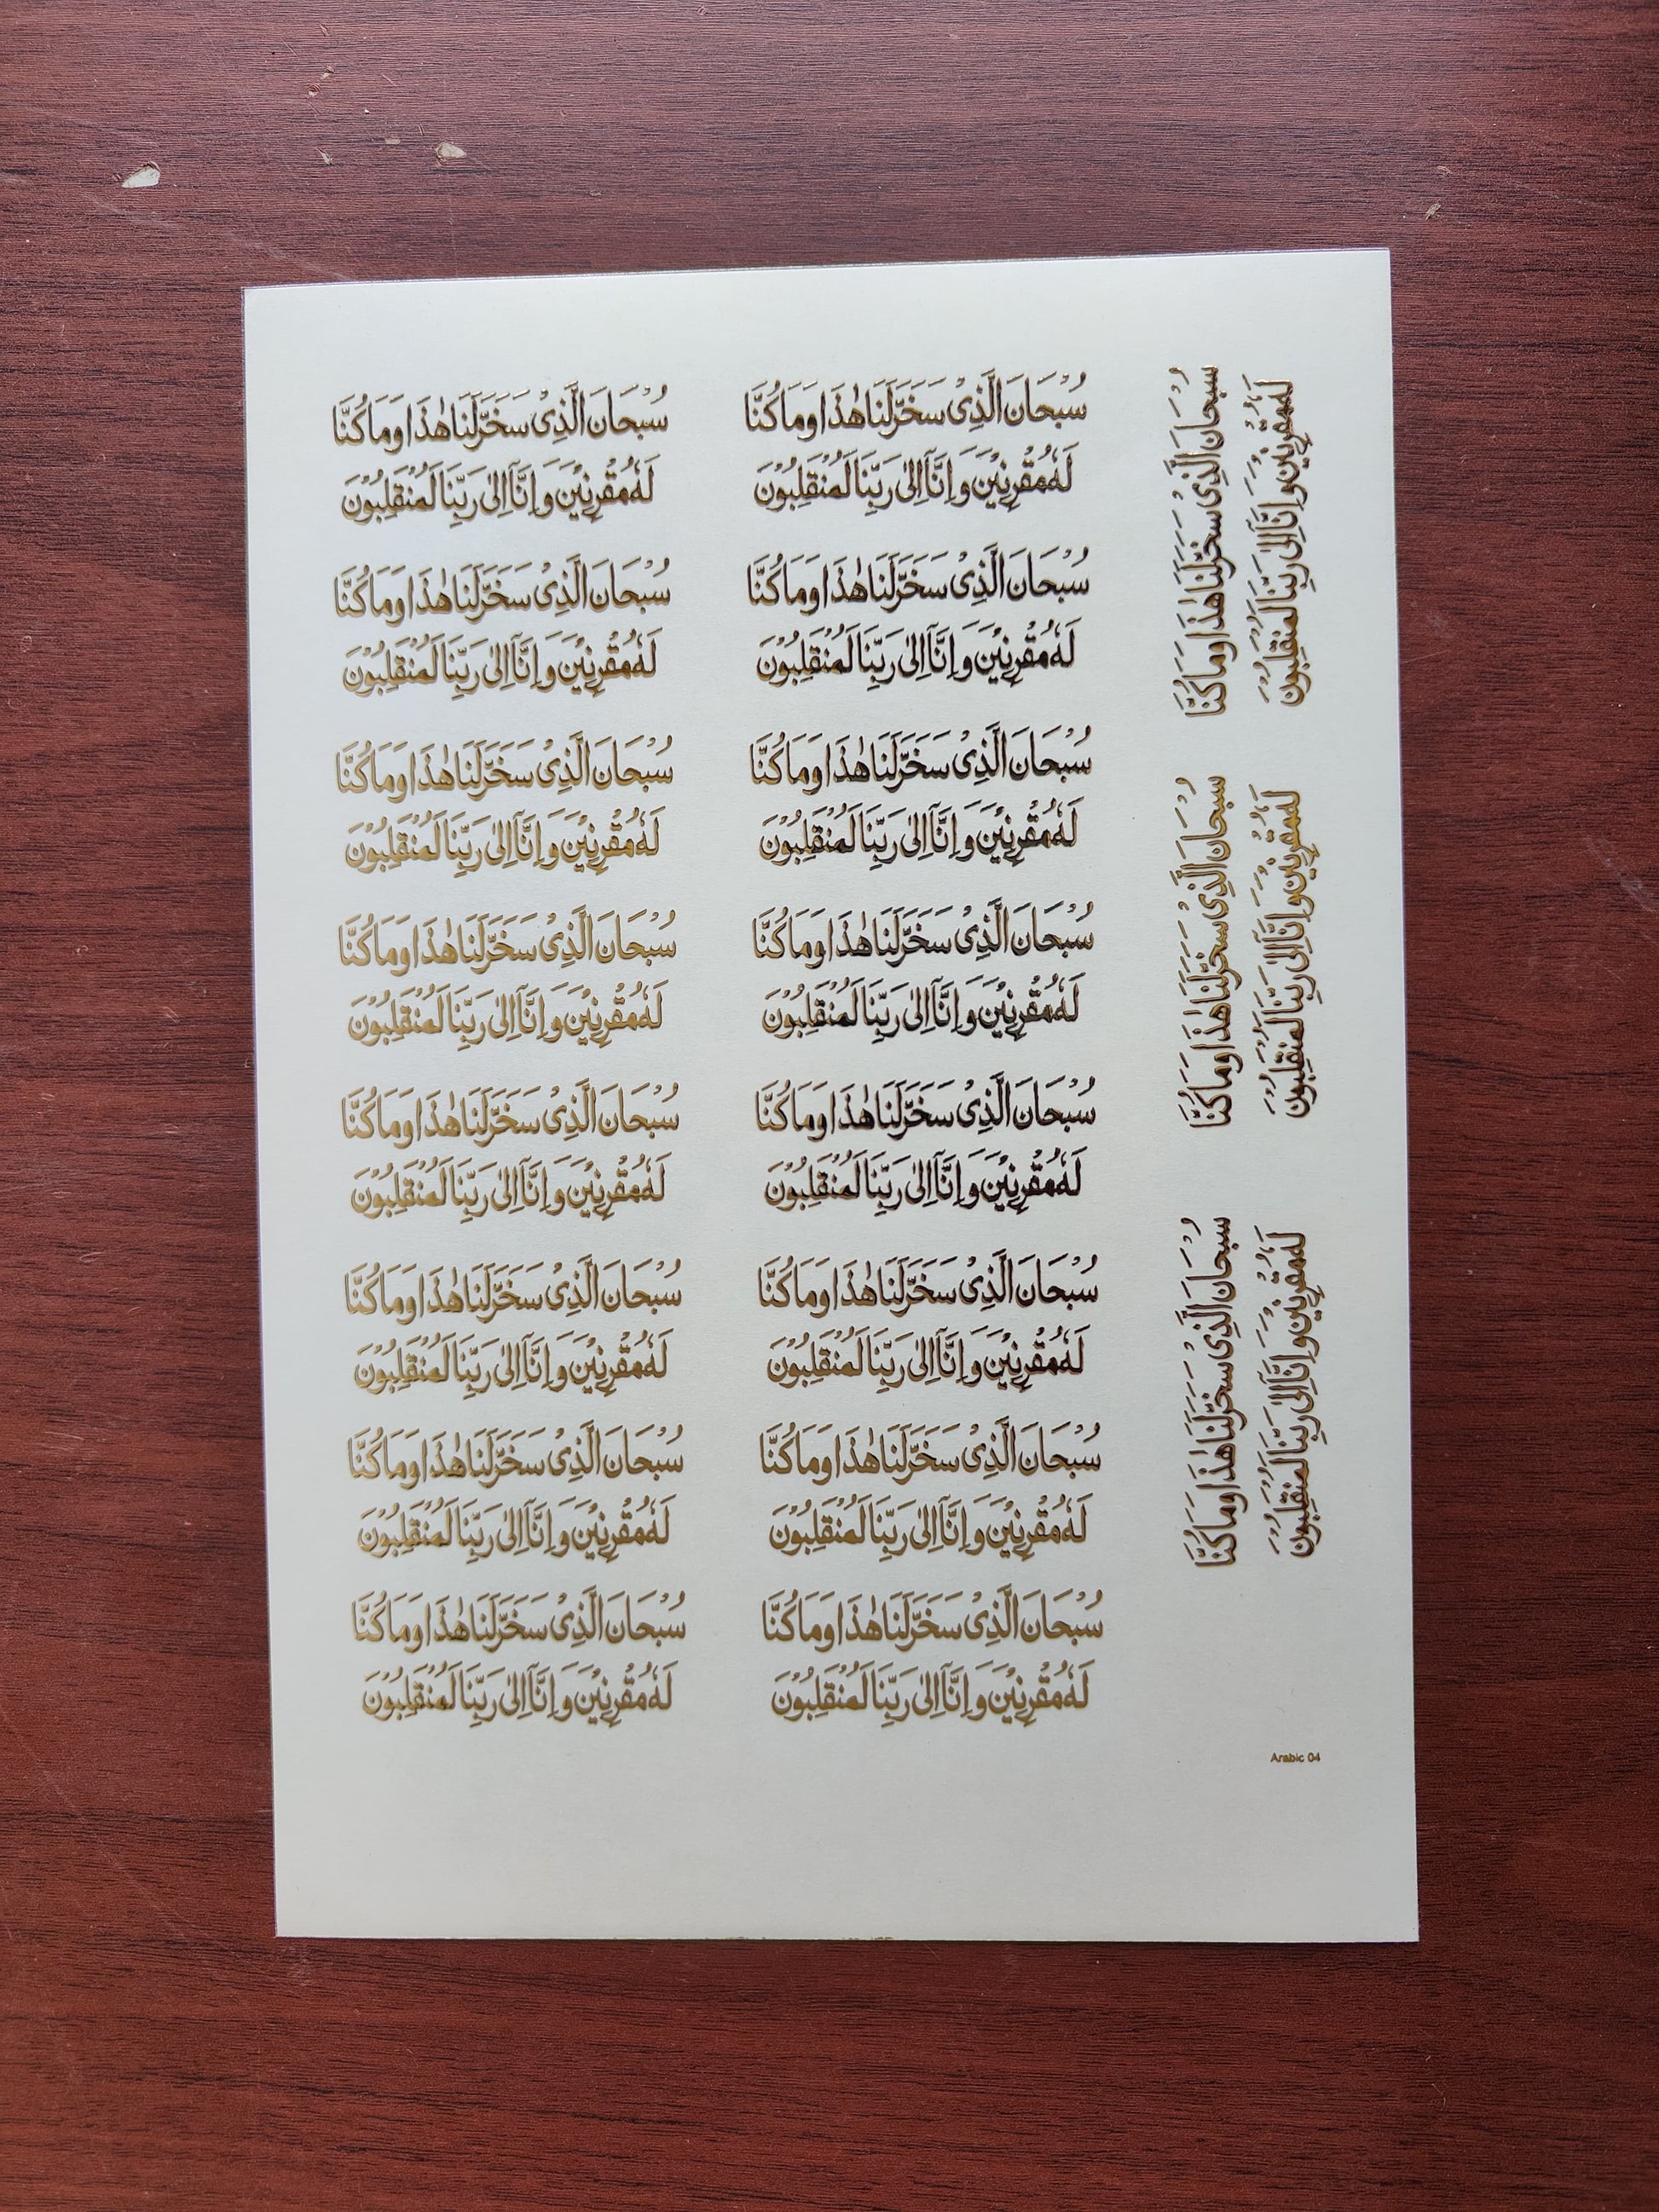 سُبْحَانَ الَّذِىْ سَخَّرَ لَنَا هٰذَا وَمَا كُنَّا
لَهٗ مُقْرِنِيْنَ وَ اِنَّآ اِلىٰ رَبِّنَا لَمُنْقَلِبُوْنَ
سُبْحَانَ الَّذِىْ سَخَّرَ لَنَا هٰذَا وَمَا كُنَّا
لَهٗ مُقْرِنِيْنَ وَ اِنَّآ اِلىٰ رَبِّنَا لَمُنْقَلِبُوْنَ
سُبْحَانَ الَّذِىْ سَخَّرَ لَنَا هٰذَا وَمَا كُنَّا
لَهٗ مُقْرِنِيْنَ وَ اِنَّآ اِلىٰ رَبِّنَا لَمُنْقَلِبُوْنَ
سُبْحَانَ الَّذِىْ سَخَّرَ لَنَا هٰذَا وَمَا كُنَّا
لَهٗ مُقْرِنِيْنَ وَ اِنَّآ اِلىٰ رَبِّنَا لَمُنْقَلِبُوْنَ
سُبْحَانَ الَّذِىْ سَخَّرَ لَنَا هٰذَا وَمَا كُنَّا
لَهٗ مُقْرِنِيْنَ وَ اِنَّآ اِلىٰ رَبِّنَا لَمُنْقَلِبُوْنَ
سُبْحَانَ الَّذِىْ سَخَّرَ لَنَا هٰذَا وَمَا كُنَّا
لَهٗ مُقْرِنِيْنَ وَ اِنَّآ اِلىٰ رَبِّنَا لَمُنْقَلِبُوْنَ
سُبْحَانَ الَّذِىْ سَخَّرَ لَنَا هٰذَا وَمَا كُنَّا
لَهٗ مُقْرِنِيْنَ وَ اِنَّآ اِلىٰ رَبِّنَا لَمُنْقَلِبُوْنَ
سُبْحَانَ الَّذِىْ سَخَّرَ لَنَا هٰذَا وَمَا كُنَّا
لَهٗ مُقْرِنِيْنَ وَ اِنَّآ اِلىٰ رَبِّنَا لَمُنْقَلِبُوْنَ
سُبْحَانَ الَّذِىْ سَخَّرَ لَنَا هٰذَا وَمَا كُنَّا
لَهٗ مُقْرِنِيْنَ وَ اِنَّآ اِلىٰ رَبِّنَا لَمُنْقَلِبُوْنَ
سُبْحَانَ الَّذِىْ سَخَّرَ لَنَا هٰذَا وَمَا كُنَّا
لَهٗ مُقْرِنِيْنَ وَ اِنَّآ اِلىٰ رَبِّنَا لَمُنْقَلِبُوْنَ
سُبْحَانَ الَّذِىْ سَخَّرَ لَنَا هٰذَا وَمَا كُنَّا
لَهٗ مُقْرِنِيْنَ وَ اِنَّآ اِلىٰ رَبِّنَا لَمُنْقَلِبُوْنَ
سُبْحَانَ الَّذِىْ سَخَّرَ لَنَا هٰذَا وَمَا كُنَّا
لَهٗ مُقْرِنِيْنَ وَ اِنَّآ اِلىٰ رَبِّنَا لَمُنْقَلِبُوْنَ
سُبْحَانَ الَّذِىْ سَخَّرَ لَنَا هٰذَا وَمَا كُنَّا
لَهٗ مُقْرِنِيْنَ وَ اِنَّآ اِلىٰ رَبِّنَا لَمُنْقَلِبُوْنَ
سُبْحَانَ الَّذِىْ سَخَّرَ لَنَا هٰذَا وَمَا كُنَّا
لَهٗ مُقْرِنِيْنَ وَ اِنَّآ اِلىٰ رَبِّنَا لَمُنْقَلِبُوْنَ
سُبْحَانَ الَّذِىْ سَخَّرَ لَنَا هٰذَا وَمَا كُنَّا
لَهٗ مُقْرِنِيْنَ وَ اِنَّآ اِلىٰ رَبِّنَا لَمُنْقَلِبُوْنَ
سُبْحَانَ الَّذِىْ سَخَّرَ لَنَا هٰذَا وَمَا كُنَّا
لَهٗ مُقْرِنِيْنَ وَ اِنَّآ اِلىٰ رَبِّنَا لَمُنْقَلِبُوْنَ
سُبْحَانَ الَّذِىْ سَخَّرَ لَنَا هٰذَا وَمَا كُنَّا
لَهٗ مُقْرِنِيْنَ وَ اِنَّآ اِلىٰ رَبِّنَا لَمُنْقَلِبُوْنَ
سُبْحَانَ الَّذِىْ سَخَّرَ لَنَا هٰذَا وَمَا كُنَّا
لَهٗ مُقْرِنِيْنَ وَ اِنَّآ اِلىٰ رَبِّنَا لَمُنْقَلِبُوْنَ
سُبْحَانَ الَّذِىْ سَخَّرَ لَنَا هٰذَا وَمَا كُنَّا
لَهٗ مُقْرِنِيْنَ وَ اِنَّآ اِلىٰ رَبِّنَا لَمُنْقَلِبُوْنَ
Arabic 04